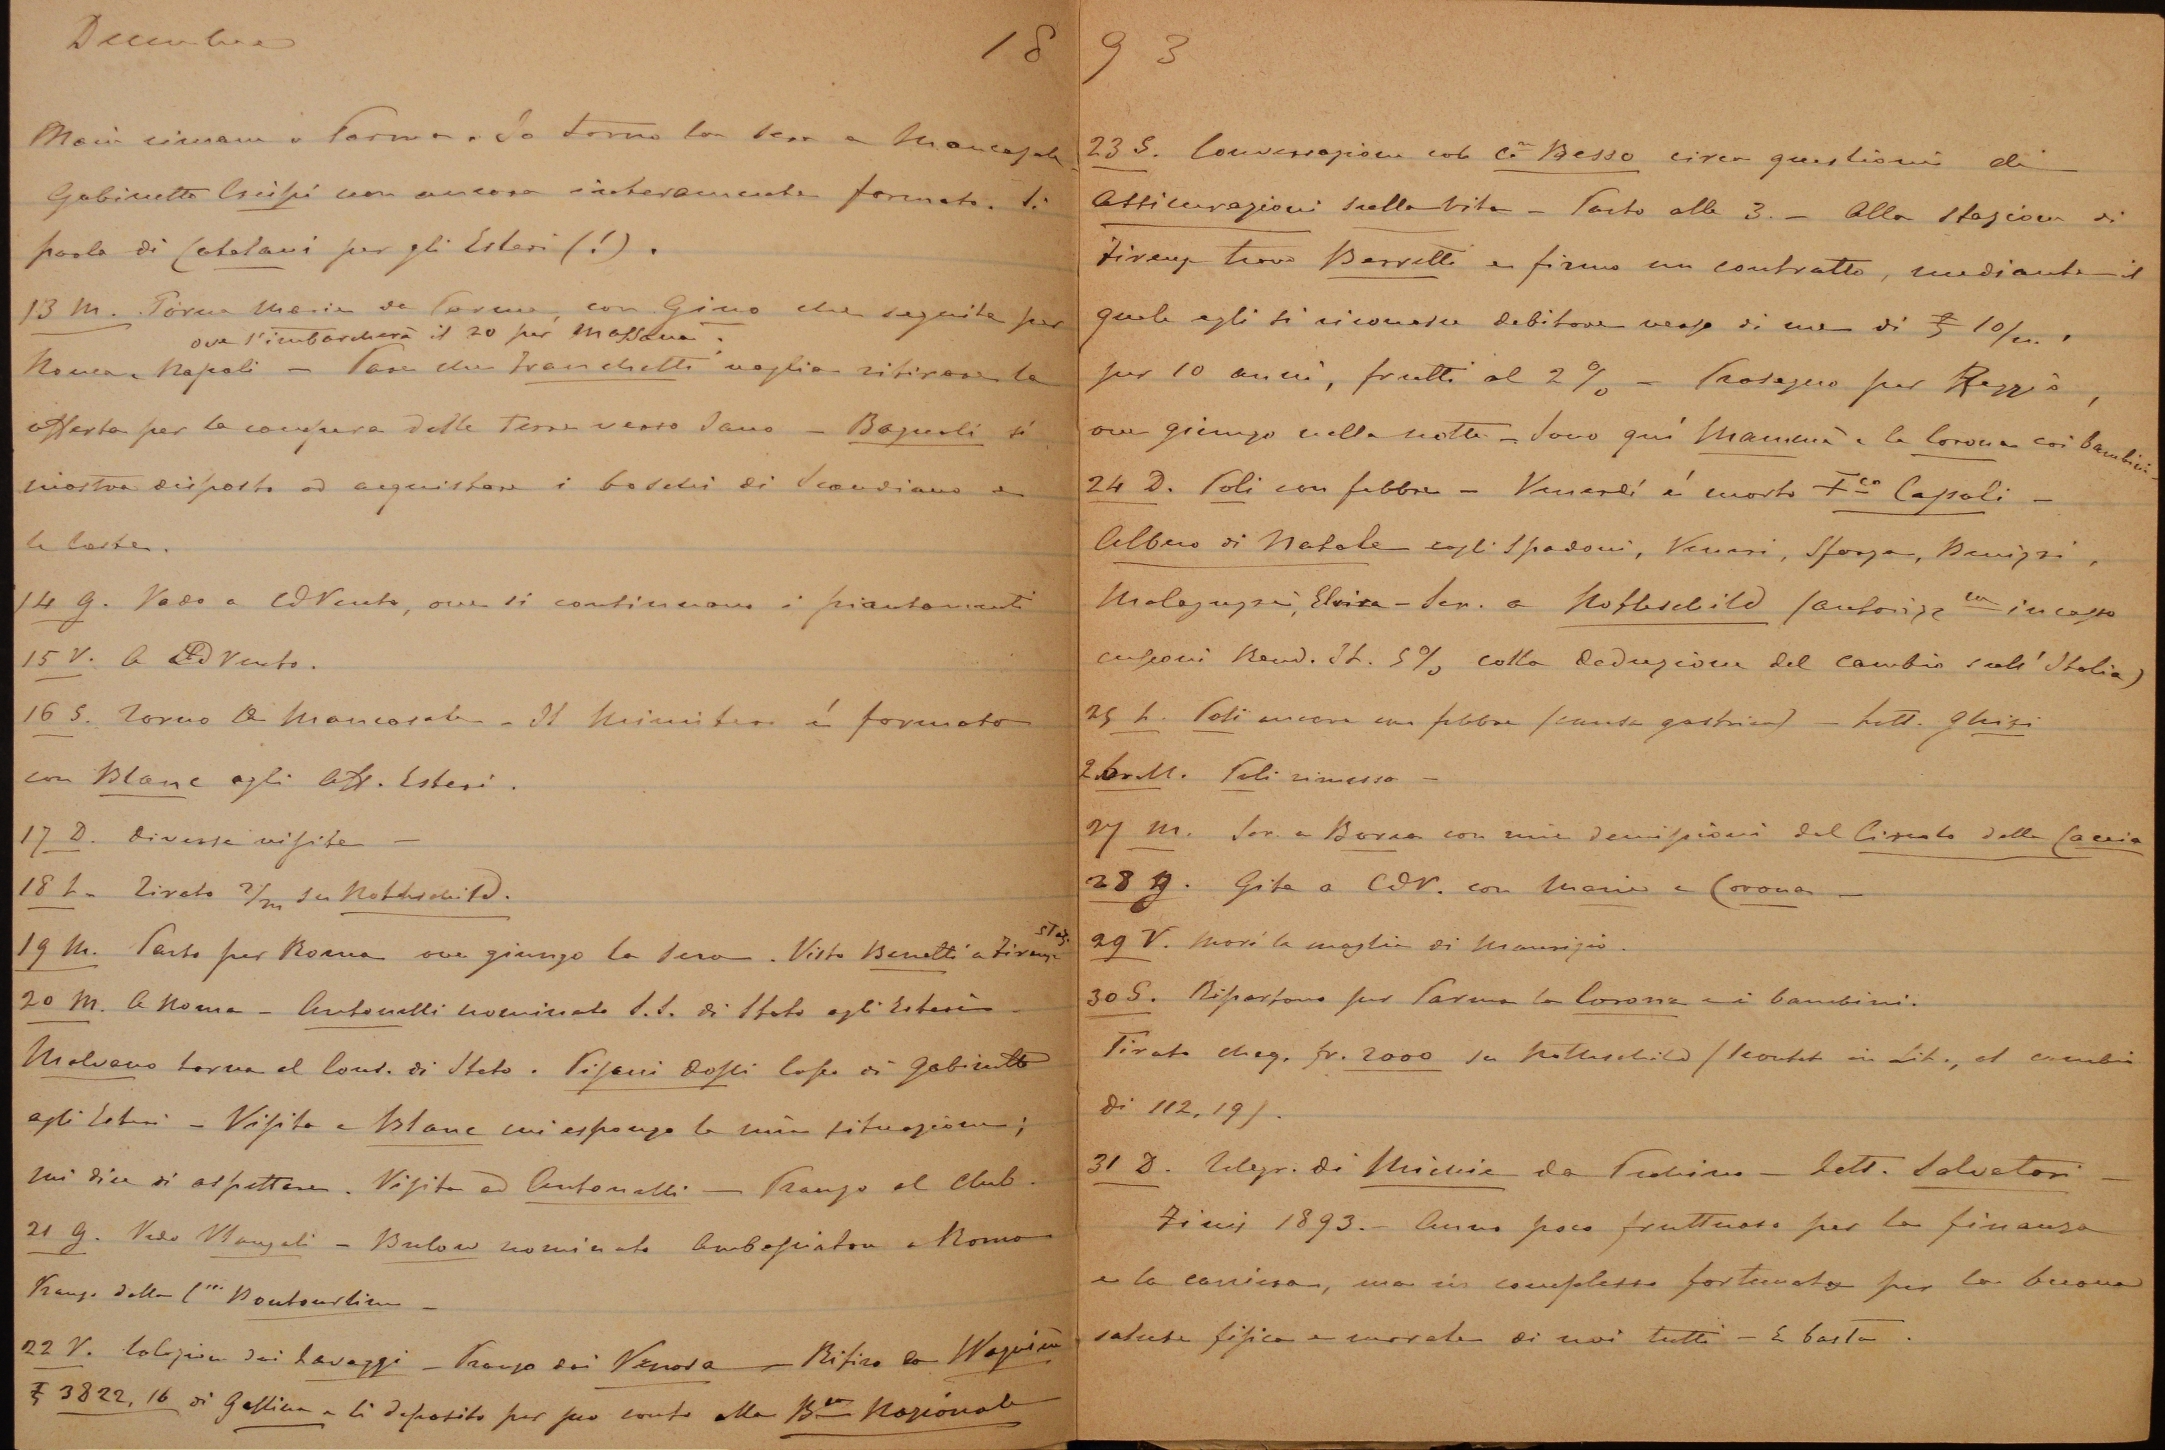 Decembre
1893
Maria rimane a Parma. Io torno la sera a Mancasale
Gabinetto Crispi non ancora interamente formato. Si
parla di Catalani per gli Esteri (!).
13 M. Torna Maria da Parma, con Gino che seguita per
ove s'imbarcherà il 20 per Massaua.
Roma e Napoli - Pare che Franchetti voglia ritirare la
offerta per la compera delle terre verso Sano - Bagnoli si
mostra disposto ad acquistare i boschi di Scandiano e
le Coste.
14 G. Vado a CdVento, ove si continuano i piantamenti
15 V. A CdVento.
16 S. Torno a Mancasale - Il Ministero é formato
con Blanc agli Aff. Esteri.
17 D. Diverse visite -
18 L. Tirato 2/m su Rothschild.
19 M. Parto per Roma ove giungo la sera. Visto Berretti a Firenze
staz.
20 M. A Roma - Antonelli nominato S.S. di Stato agli Esteri -
Malvano torna al Cons. di Stato. Pisani Dossi Capo di Gabinetto
agli Esteri - Visita a Blanc cui espongo la mia situazione;
mi dice di aspettare. Visita ad Antonelli - Pranzo al Club.
21 G. Vedo - Bulow nominato Ambasciatore a Roma
Pranzo dalla C.ssa Boutourline -
22 V. Colazione dai Lavaggi - Pranzo dai Venosa - Ritiro da Wagnière
₤ 3822,16 di Gessica e li deposito per suo conto alla B.ca Nazionale
23 S. Conversazione col C.e Besso circa questioni di
Assicurazioni sulla vita - Parto alle 3. - Alla stazione di
Firenze trovo Berretti e firmo un contratto, mediante il
quale egli si riconosce debitore verso di me di ₤ 10/m.
per 10 anni, frutti al 2% - Proseguo per Reggio,
ove giungo nella notte - Sono quí Mammà e la Corona coi bambini -
24 D. Poli con febbre - Venerdí é morto F.co Cassoli -
Albero di Natale cogli Spadoni, Veneri, Sforza,
Malaguzzi, Eloisa - Scr. a Rothschild (autorizz.ne incasso
cuponi Rend. It. 5% colla deduzione del cambio sull'Italia)
25 L. Poli ancora con febbre (causa gastrica) - Lett. Ghisi
26 M. Poli rimesso -
27 M. Scr. a Borea con mie demissioni dal Circolo della Caccia
28 G. Gita a CdV. con Maria e Corona -
29 V. Morí la moglie di Maurizio.
30 S. Ripartono per Parma la Corona e i bambini.
Tirato cheq. fr. 2000 su Rothschild ( in Lit., al cambio
di 112,19).
31 D. Telegr. di Michie da Pechino - Lett. Salvatori -
Finis 1893. - Anno poco fruttuoso per la finanza
e la carriera, ma in complesso fortunato per la buona
salute fisica e morale di noi tutti - E basta.